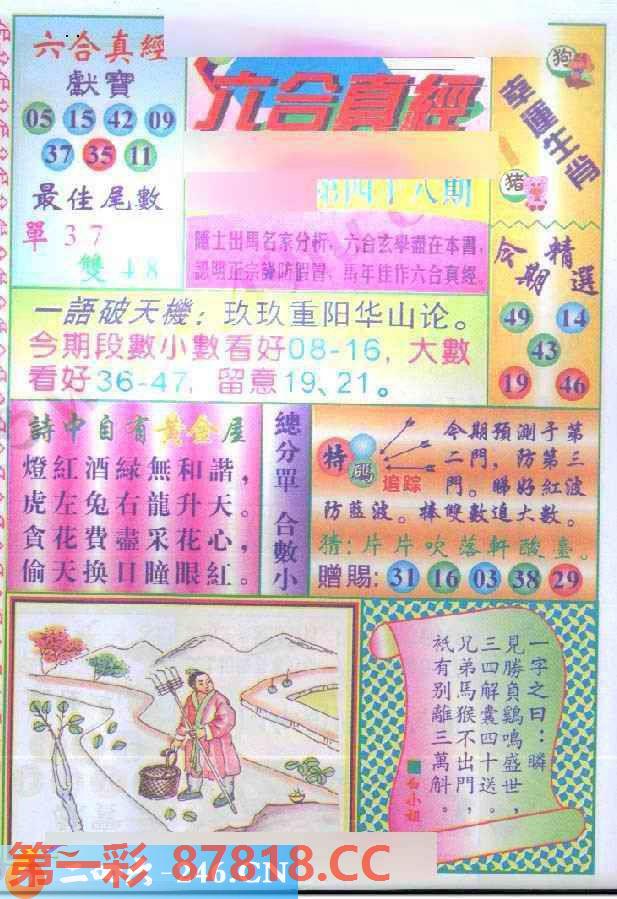 六合真經
獻寶
05 15 42 09
37 35 11
最佳尾數
單 3 7
雙 4 8
六合真經
第四十八期
隱士出馬名家分析，六合玄學盡在本書，
認明正宗謹防假冒，馬年佳作六合真經。
狗
幸運生肖
豬
今期
精選
49 14
43
19 46
一語破天機：玖玖重阳华山论。
今期段數小數看好08-16，大數
看好36-47，留意19、21。
詩中自有黃金屋
燈紅酒綠無和諧，
虎左兔右龍升天。
貪花費盡采花心，
偷天換日瞳眼紅。
總分單 合數小
特碼
追踪
今期預測于第
二門，防第三
門。睇好紅波
防藍波。棒雙數追大數。
猜：片片吹落軒酸臺。
贈賜：31 16 03 38 29
一字之曰：瞬
見勝負鷄鳴盛世，
三四解囊四十送。
兄弟馬猴不出門，
祇有別離三萬斛。
白小姐
第一彩 87818.CC
-246.CN